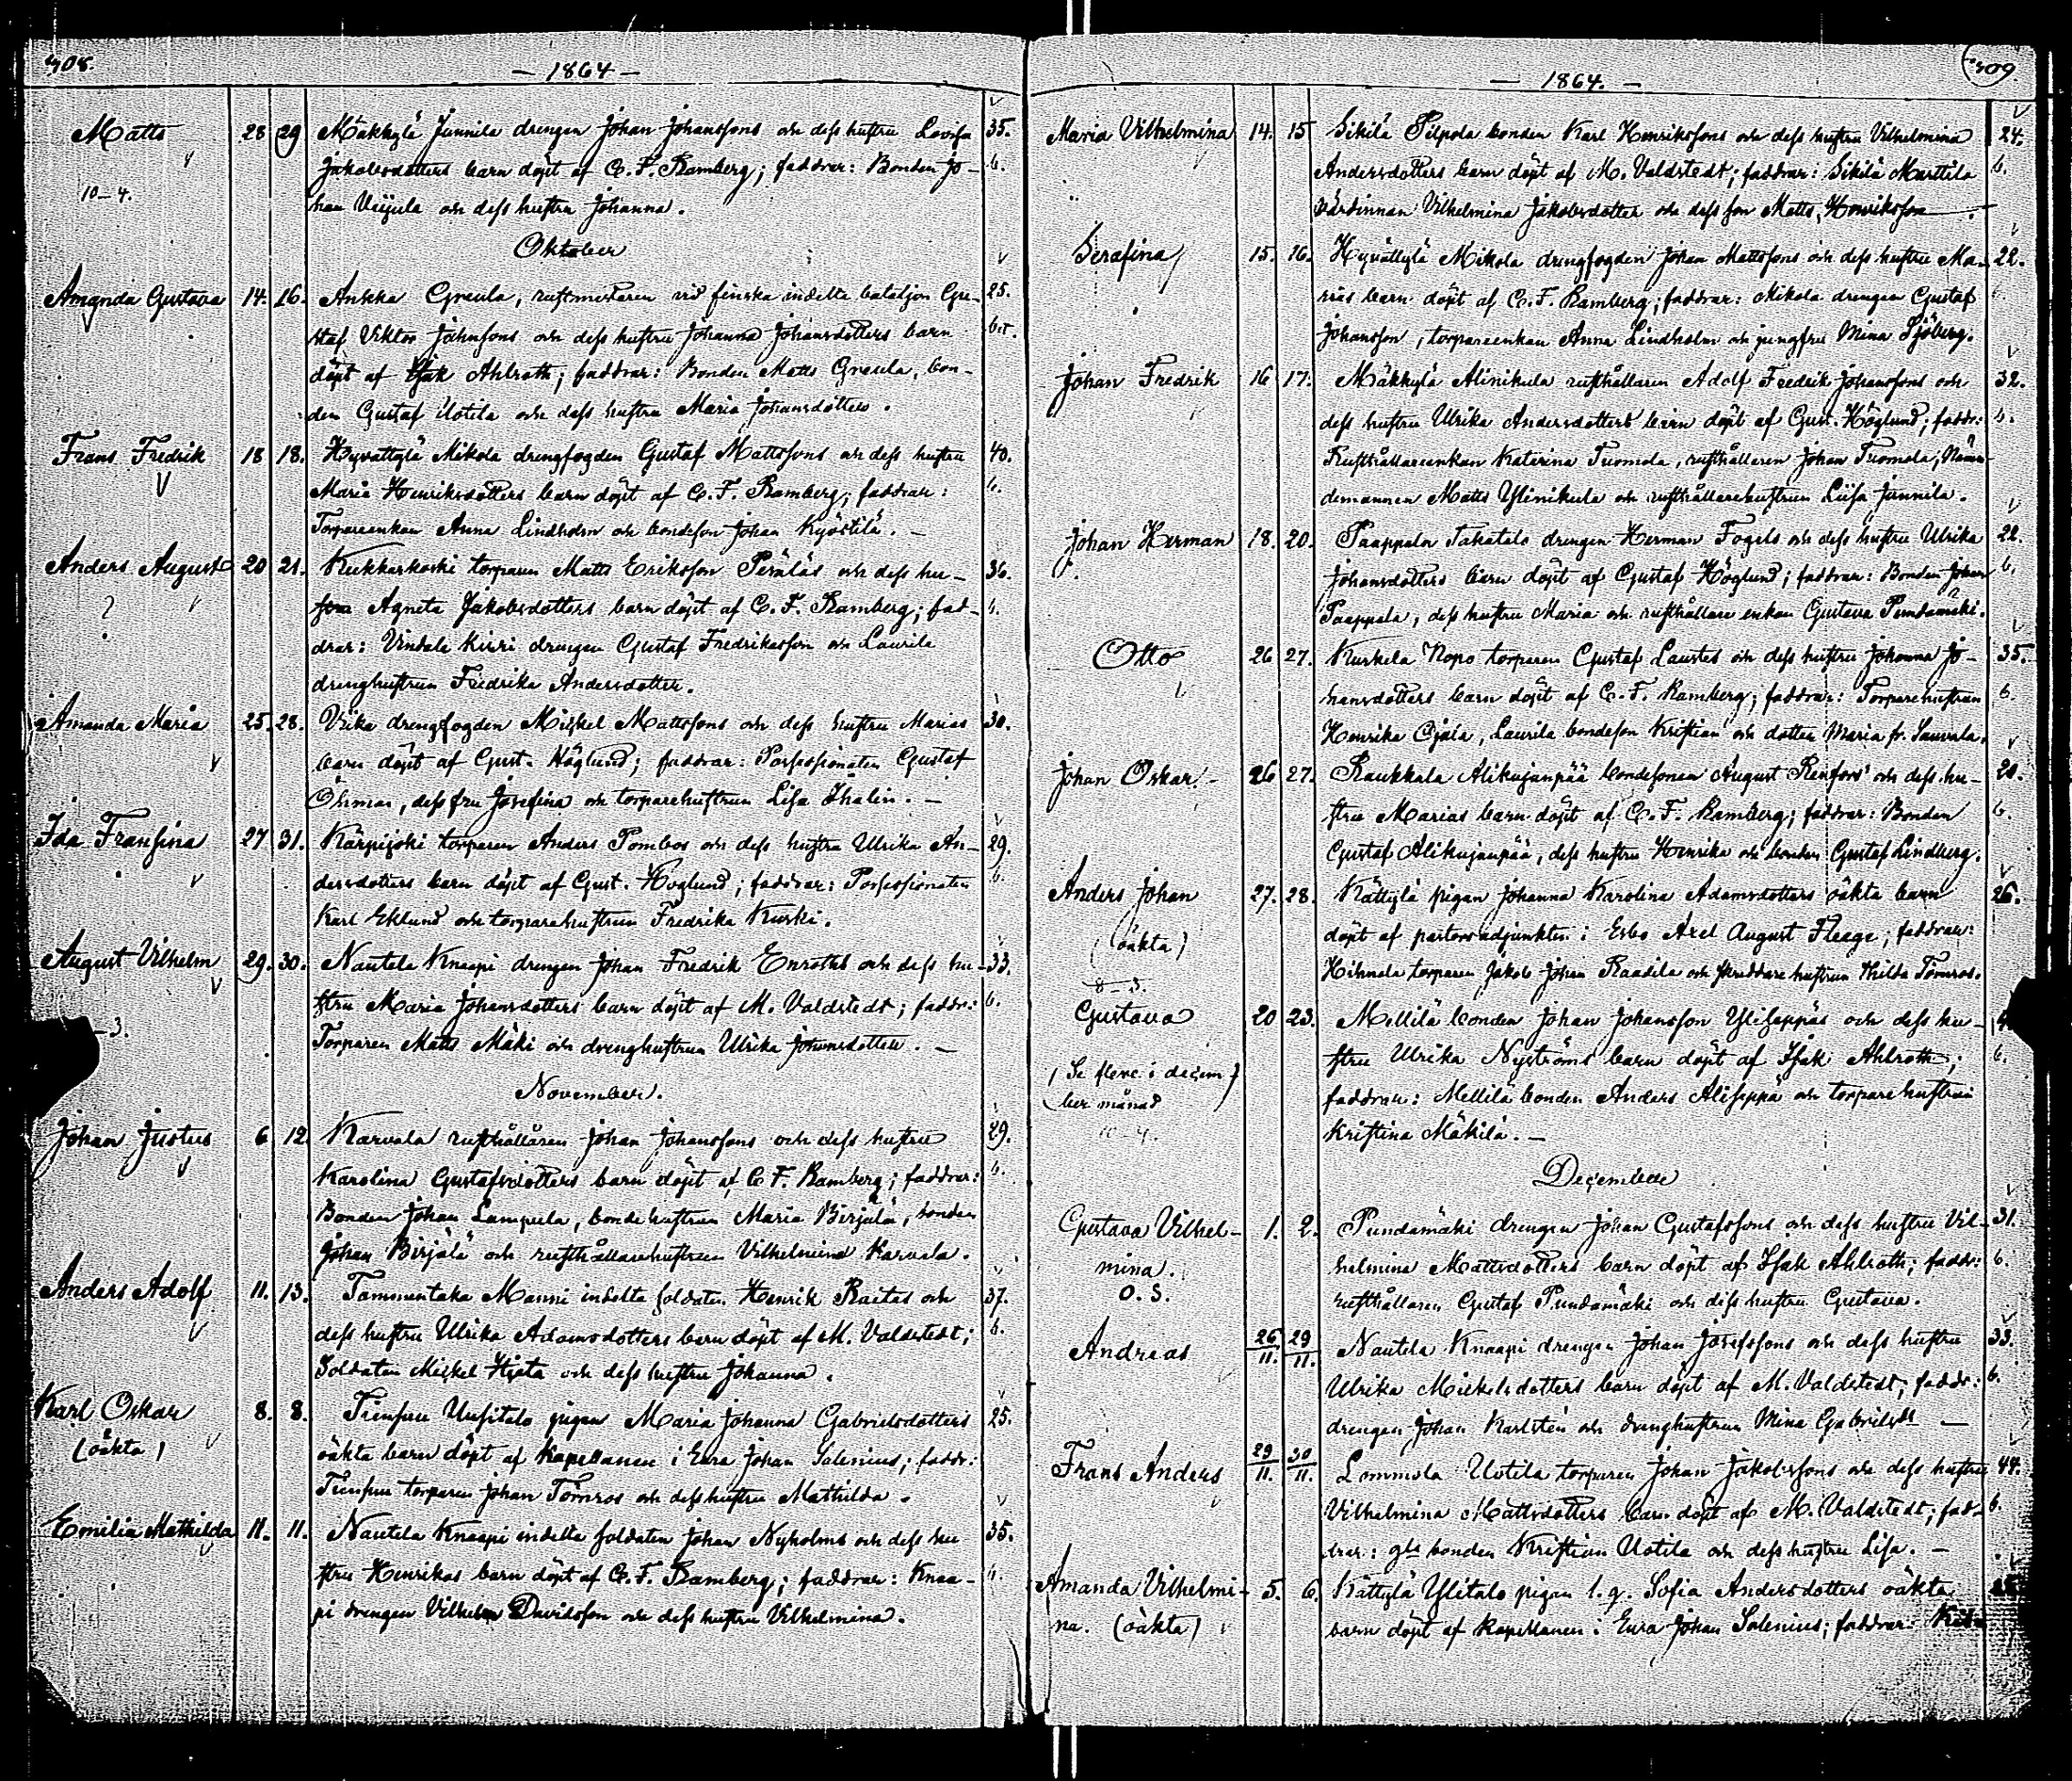 308.
— 1864 —
Matts 28 29 Mäkkylä Junnila drengen Johan Johanssons och dess hustru Lovisa 35.
Jakobsdotters barn döpt af C. F. Ramberg; faddrar: Bonden Jo- b.
10–4. han och dess hustru Johanna.
Oktober
Amanda Gustava 14. 16. Ankka Greula, rustmästaren vid finska indelta bataljon Gu- 25.
staf Viktor Johnssons och dess hustru Johanna Johansdotters barn
döpt af Isak Ahlroth; faddrar: Bonden Matts Greula, bon-
den Gustaf Uotila och dess hustru Maria Johansdotter.
Frans Fredrik 18 18. Hyvättylä Mikola drengfogden Gustaf Mattssons och dess hustru 40.
Maria Henriksdotters barn döpt af C. F. Ramberg; faddrar: b.
Torpareenkan Anna Lindholm och bondeson Johan Kyöstilä. —
Anders August 20 21. Kukkarkoski torparen Matts Eriksson Peräläs och dess hu- 36.
? Agneta Jakobsdotters barn döpt af C. F. Ramberg; fad- b.
drar: Kiiri drengen Gustaf Fredriksson och Laurila
drenghustrun Fredrika Andersdotter.
Amanda Maria 25. 28. Vika drengfogden Mickel Mattssons och dess hustru Marias 30.
barn döpt af Gust. Höglund; faddrar: Possessionaten Gustaf
Öhman, dess fru Josefina och torparehustrun Lisa Thalin. —
Ida Fransina 27 31. Kärpijoki torparen Anders Pombos och dess hustru Ulrika An- 29.
dersdotters barn döpt af Gust. Höglund; faddrar: Possessionaten b.
Karl Eklund och torparehustrun Fredrika Kurki.
August Vilhelm 29. 30. Nautela Knaapi drengen Johan Fredrik Enroths och dess hu- 33.
stru Maria Johansdotters barn döpt af M. Valdstedt; faddr.: b.
–3. Torparen Matts Mäki och drenghustrun Ulrika Johansdotter. —
November.
Johan Justus 6 12 Karvala rusthållaren Johan Johanssons och dess hustru 29.
Karolina Gustafsdotters barn döpt af C F. Ramberg; faddrar: b.
Bonden Johan Lampula, bondehustrun Maria Birjälä, bonden
Johan Birjälä och rusthållarehustrun Vilhelmina Karvala.
Anders Adolf 11. 13. Tammentaka Manni indelta soldaten Henrik Raitas och 37.
dess hustru Ulrika Adamsdotters barn döpt af M. Valdstedt; b.
Soldaten Mickel Hjeta och dess hustru Johanna.
Karl Oskar 8. 8. Uusitalo pigan Maria Johanna Gabrielsdotters 25.
(oäkta) oäkta barn döpt af Kapellanen i Eura Johan Salenius; faddr:
torparen Johan Törnros och dess hustru Mathilda.
Emilia Mathilda 11. 11. Nautela Knaapi indelta soldaten Johan Nyholms och dess hu- 35.
stru Henrikas barn döpt af C. F. Ramberg; faddrar: Knaa- b.
pi drengen Vilhelm Davidsson och dess hustru Vilhelmina.
309
— 1864. —
Maria Vilhelmina 14. 15 Sikilä Pilpola bonden Karl Henrikssons och dess hustru Vilhelmina 24.
Andersdotters barn döpt af M. Valdstedt; faddrar: Sikilä Marttila b.
värdinnan Vilhelmina Jakobsdotter och dess son Matts Henriksson.
Serafina 15. 16. Hyvättylä Mikola drengfogden Johan Mattssons och dess hustru Ma- 22.
rias barn döpt af C. F. Ramberg; faddrar: Mikola drengen Gustaf
Johansson, torpareenkan Anna Lindholm och jungfru Mina Sjöberg.
Johan Fredrik 16 17. Mäkkylä Alinikula rusthållaren Adolf Fredrik Johanssons och 32.
dess hustru Ulrika Andersdotters barn döpt af Gust. Höglund; faddr: b.
Rusthållareenkan Katarina Tuomola, rusthållaren Johan Tuomola, Näm-
demannen Matts Ylinikula och rusthållarehustrun Liisa Junnila.
Johan Herman 18. 20. Paappala Takatalo drengen Herman Fogels och dess hustru Ulrika 22.
Johansdotters barn döpt af Gustaf Höglund; faddrar: Bonden Johan b.
Paappala, dess hustru Maria och rusthållare enkan Gustava Pundamäki.
Otto 26 27. Kurkela Nopo torparen Gustaf Laustes och dess hustru Johanna Jo- 35.
hansdotters barn döpt af C. F. Ramberg; faddrar: Torparehustrun b.
Henrika Ojala, Laurila bondeson Kristian och dotter Maria fr. Sauvala.
Johan Oskar. 26 27. Raukkala Alikujanpää bondesonen August Renfors' och dess hu- 20.
stru Marias barn döpt af C. F. Ramberg; faddrar: Bonden b.
Gustaf Alikujanpää, dess hustru Henrika och bonden Gustaf Lindberg.
Anders Johan 27. 28. Kättylä pigan Johanna Karolina Adamsdotters oäkta barn 26.
(oäkta) döpt af pastorsadjunkten i Esbo Axel August Fleege; faddrar:
8–3. Hihnala torparen Jakob Johan Raadila och skräddarehustrun Hilda Törnros.
Gustava 20 23. Mellilä bonden Johan Johansson Yliseppäs och dess hu-
stru Ulrika Nyströms barn döpt af Isak Ahlroth; b.
(Se flere i decem- faddrar: Mellilä bonden Anders Aliseppä och torparehustrun
ber månad)
10–4. Kristina Mäkilä. —
December
Gustava Vilhel- 1. 2. Pundamäki drengen Johan Gustafssons och dess hustru Vil- 31.
mina. helmina Mattsdotters barn döpt af Isak Ahlroth; faddr: b.
O. S. rusthållaren Gustaf Pundamäki och dess hustru Gustava.
Andreas 26/11. 29/11. Nautela Knaapi drengen Johan Josefssons och dess hustru 33.
Ulrika Mickelsdotters barn döpt af M. Valdstedt; faddr: b.
drengen Johan Karlstén och drenghustrun Mina Gabrielsdr —
Frans Anders 29/11. 30/11. Lommola Uotila torparen Johan Jakobssons och dess hustru 44.
Vilhelmina Mattsdotters barn döpt af M. Valdstedt; fad- b.
drar: gla bonden Kristian Uotila och dess hustru Lisa. —
Amanda Vilhelmi- 5. 6. Kättylä Ylitalo pigan l. q. Sofia Andersdotters oäkta
na. (oäkta) barn döpt af Kapellanen i Eura Johan Salenius; faddrar: